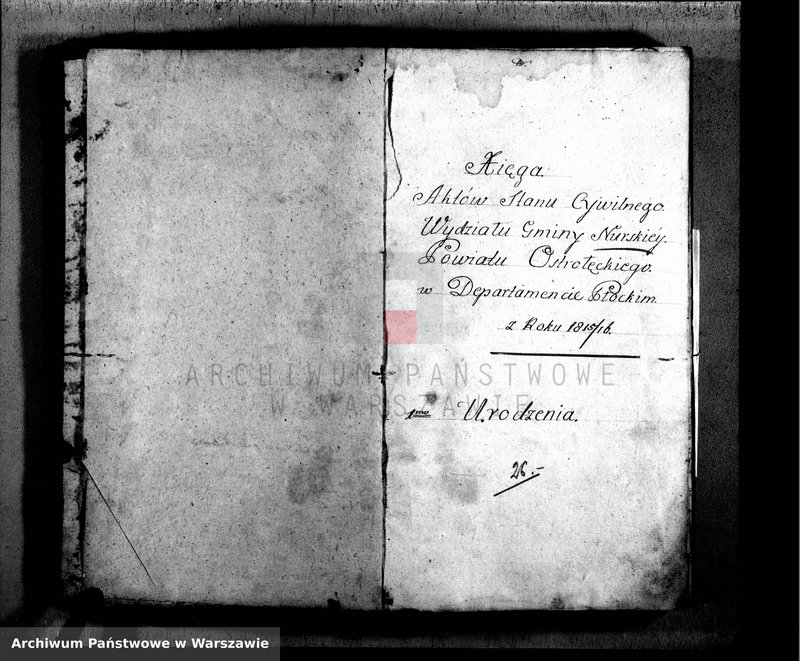 Xięga
Aktów Stanu Cywilnego
Wydziału Gminy Nurskiéy.
Powiatu Ostrołęckiego.
w Departamencie Płockim
z Roku 1815/16.
ARCHIWUM PAŃSTWOWE
W WARSZAWIE
1mo Urodzenia.
26.-
Archiwum Państwowe w Warszawie